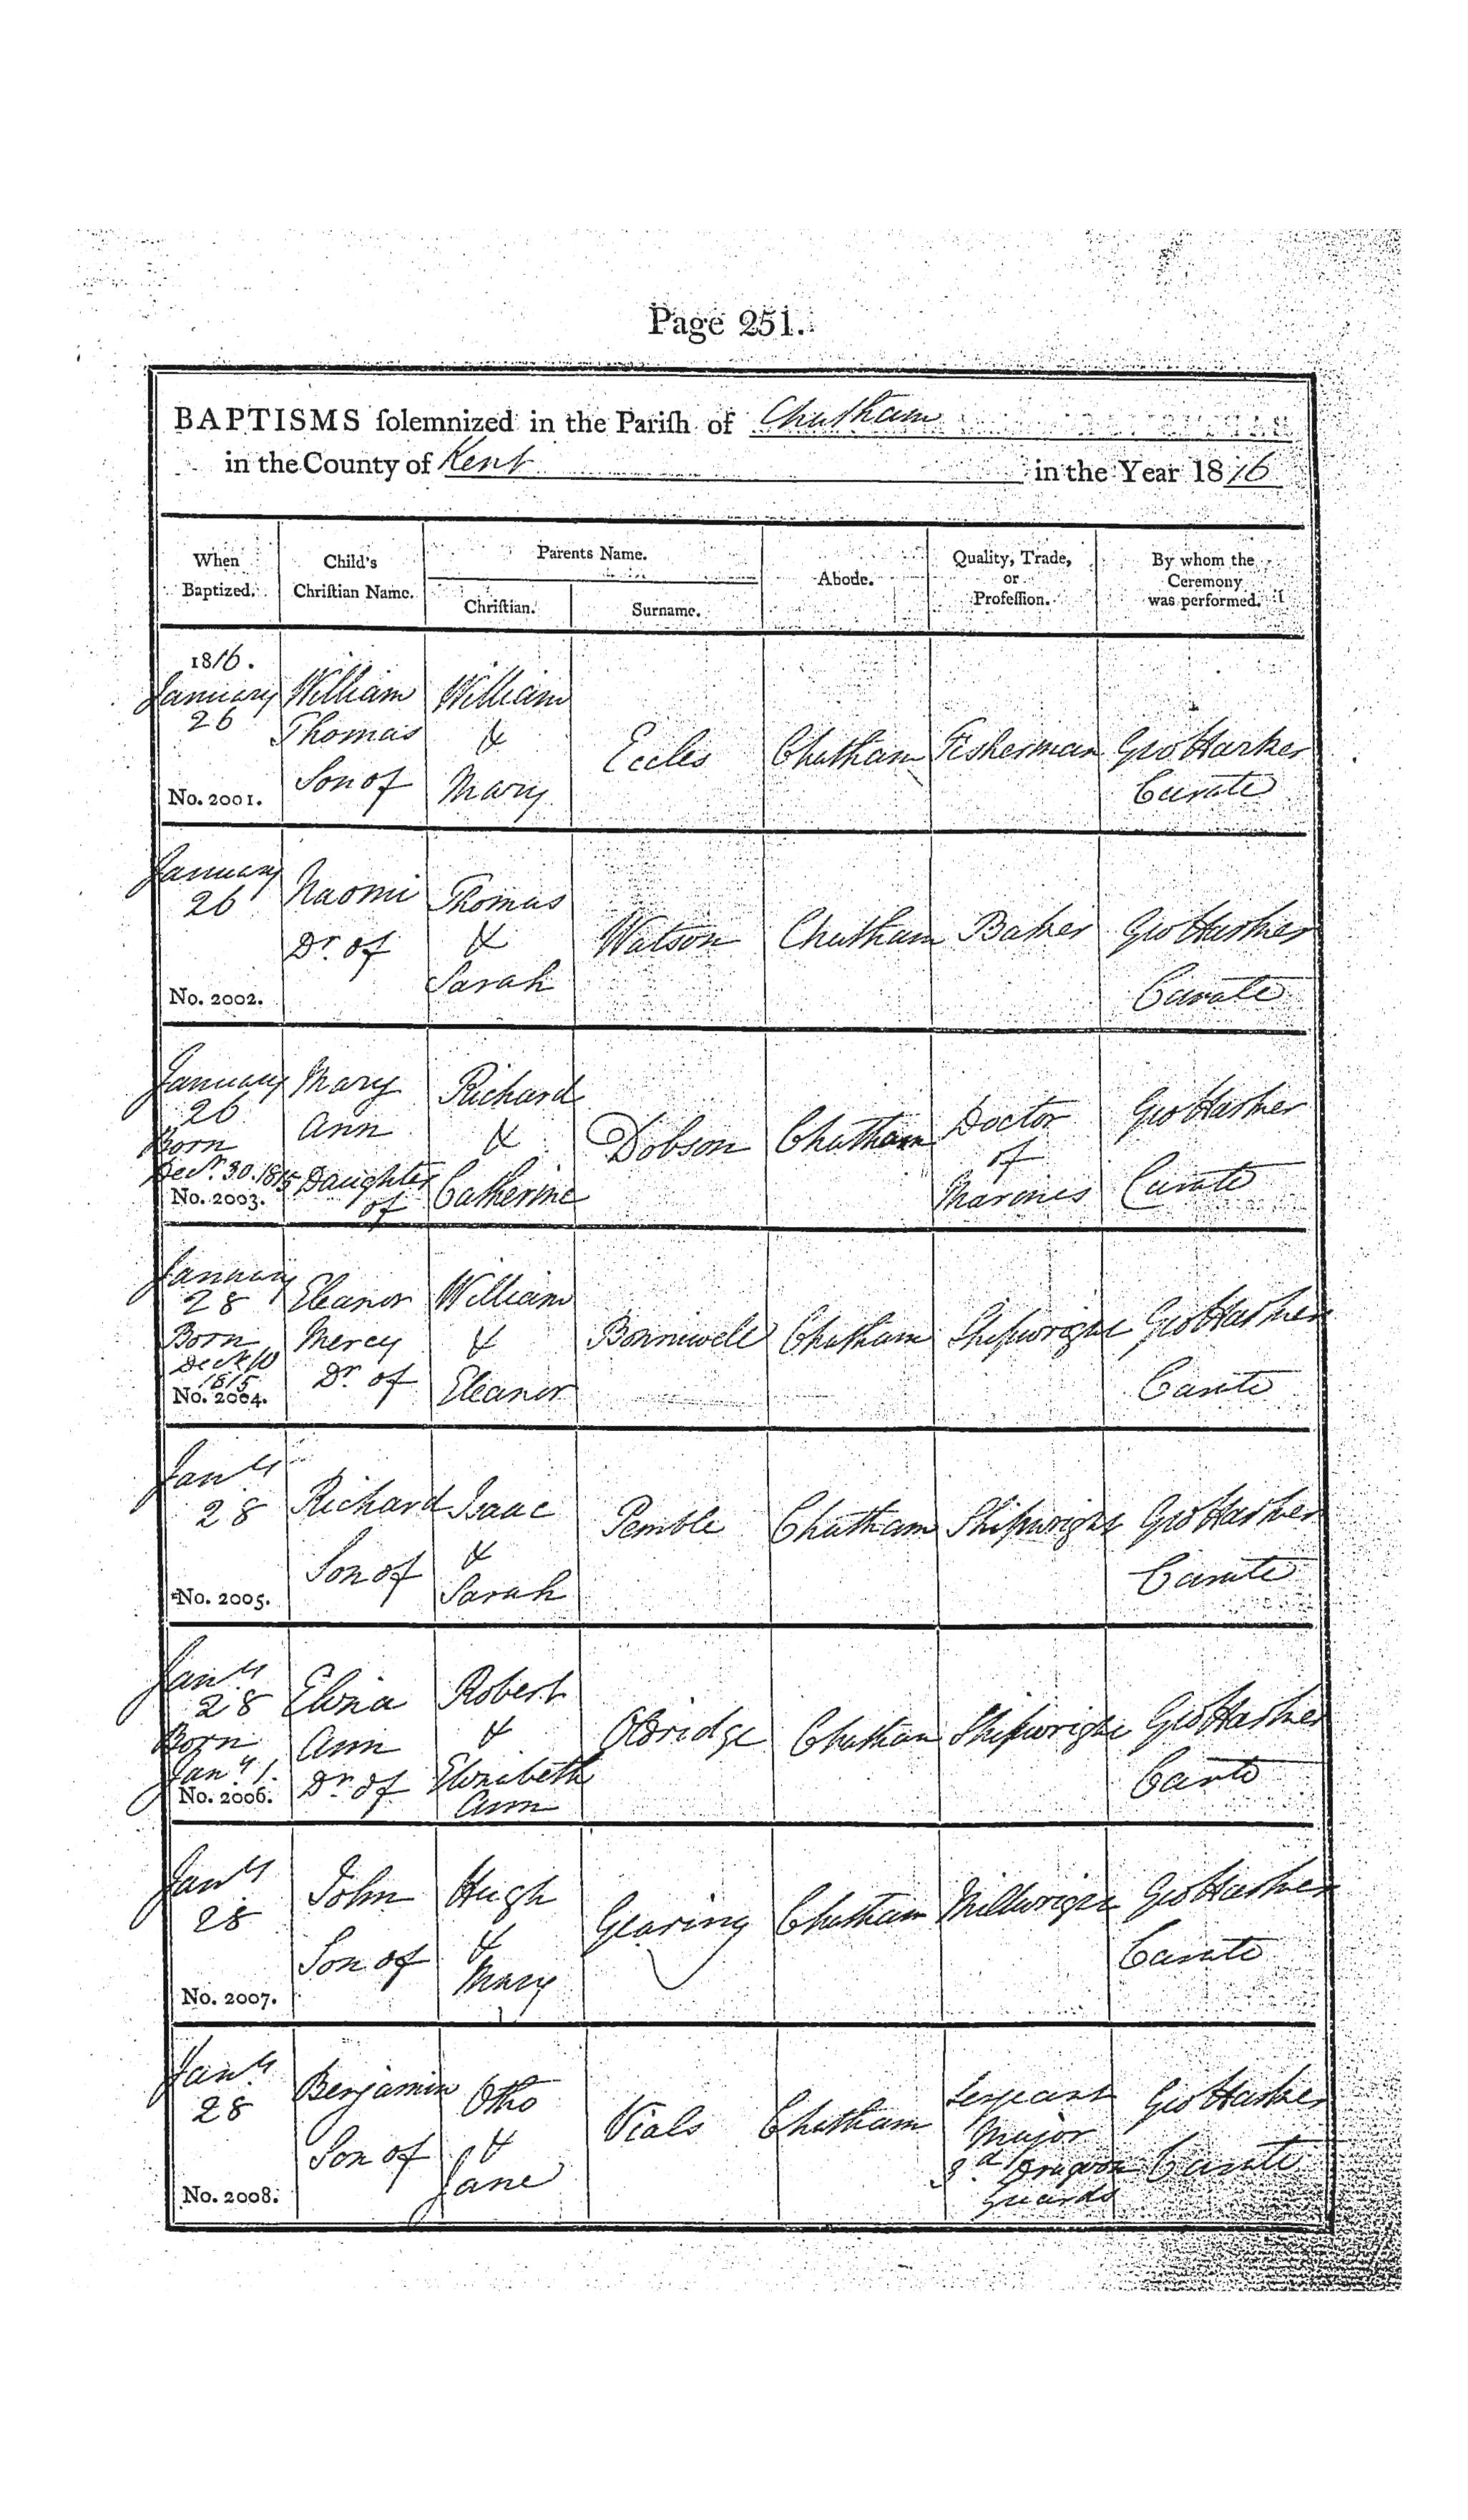 Page 251.
BAPTISMS ſolemnized in the Pariſh of Chatham
in the County of Kent in the Year 1816
When Baptized.
Child's Chriſtian Name.
Parents Name.
Chriſtian.
Surname.
Abode.
Quality, Trade, or Profeſſion.
By whom the Ceremony was performed.
1816.
January
26
No. 2001.
William
Thomas
Son of
William
&
Mary
Eccles
Chatham
Fisherman
Geo Harker
Curate
January
26
No. 2002.
Naomi
Dr. of
Thomas
&
Sarah
Watson
Chatham
Baker
Geo Harker
Curate
January
26
Born
Decr. 30. 1815
No. 2003.
Mary
Ann
Daughter
of
Richard
&
Catherine
Dobson
Chatham
Doctor
of
Marines
Geo Harker
Curate
January
28
Born
Decr. 10
1815
No. 2004.
Eleanor
Mercy
Dr. of
William
&
Eleanor
Bonniwell
Chatham
Shipwright
Geo Harker
Curate
Jany.
28
No. 2005.
Richard
Son of
Isaac
&
Sarah
Pemble
Chatham
Shipwright
Geo Harker
Curate
Jany.
28
Born
Jany. 1.
No. 2006.
Eliza
Ann
Dr. of
Robert
&
Elizabeth
Ann
Oldridge
Chatham
Shipwright
Geo Harker
Curate
Jany
28
No. 2007.
John
Son of
Hugh
&
Mary
Gearing
Chatham
Millwright
Geo Harker
Curate
Jany.
28
No. 2008.
Benjamin
Son of
Otho
&
Jane
Vials
Chatham
Serjeant
Major
3d. Dragoon
Guards
Geo Harker
Curate